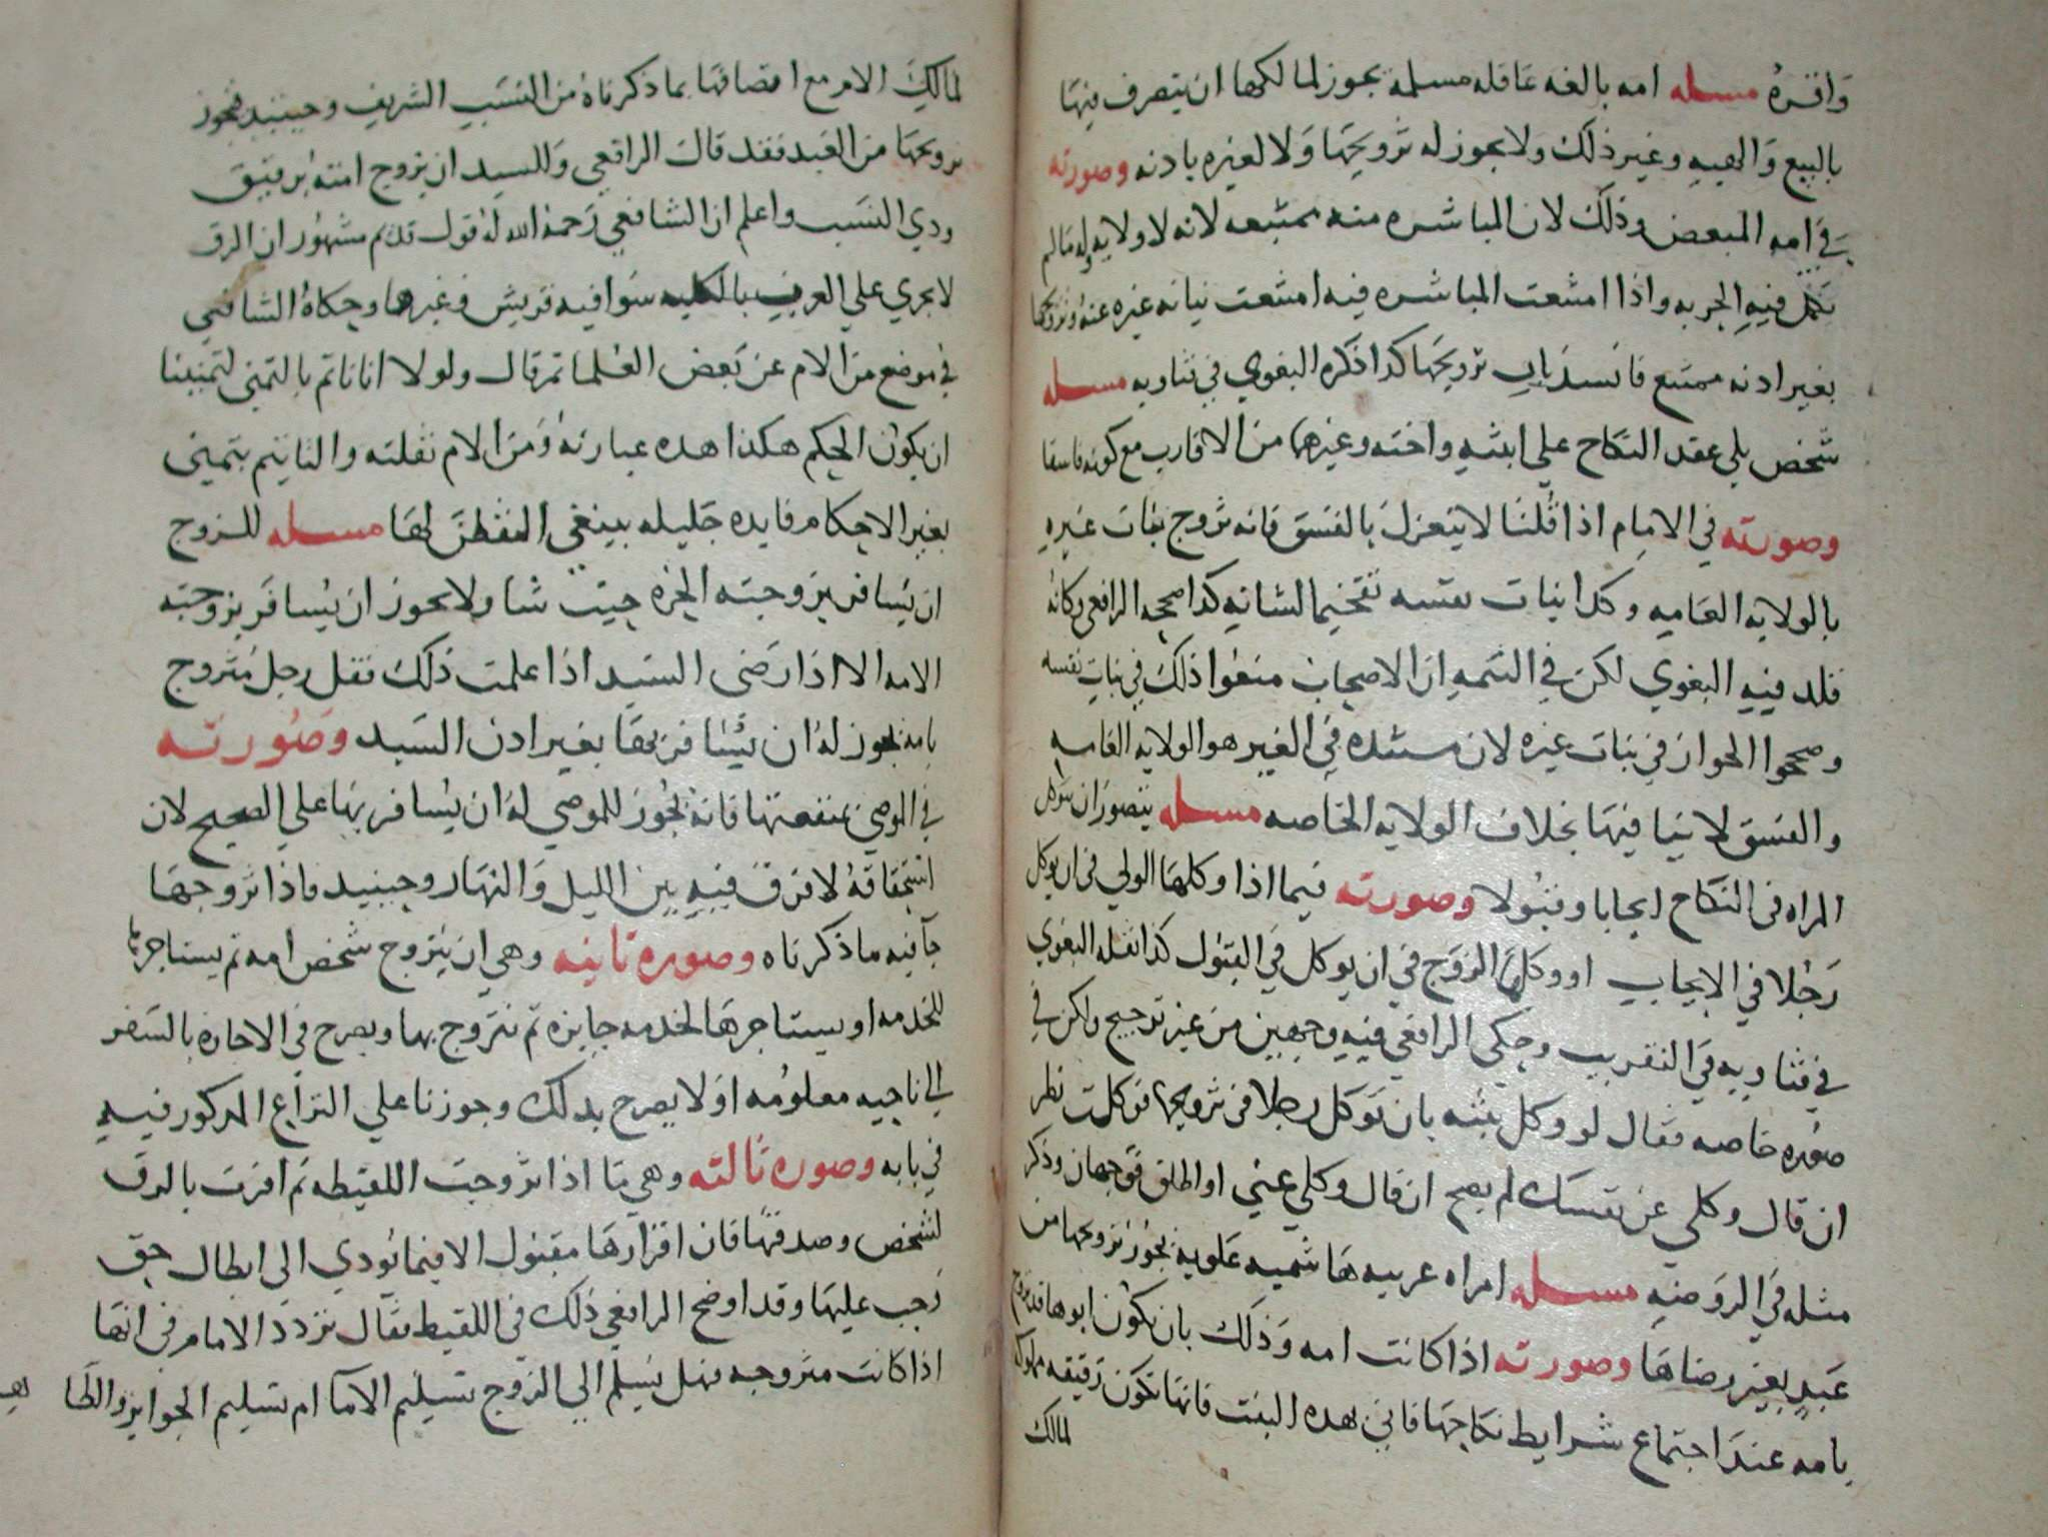 واقره مسله امه بالغه عاقله مسلمة يجوز لمالكها ان يتصرف فيها
بالبيع والهبه وغير ذلك ولا يجوز له تزويجها ولا لغيره بادنه وصورته
في امه المبعض وذلك لان المباشره منه ممتنعه لانه لا ولايه له مالم
تكمل فيه الحريه واذا امتنعت المباشره فيه امتنعت نيابة غيره عنه وتزويجها
بغير ادنه ممتنع فانسد باب تزويجها كدا ذكره البغوي في فتاويه مسله
شخص يلي عقد النكاح علي ابنته واخته وغيرهما من الاقارب مع كونه فاسقا
وصورته في الامام اذا قلنا لا ينعزل بالفسق فانه تزوج بنات غيره
بالولايه العاميه وكدا بنات نفسه تفخيما لشانه كدا صححه الرافعي وكانه
قلد فيه البغوي لكن في التتمه ان الاصحاب منعوا ذلك في بنات نفسه
وصححوا الجواز في بنات غيره لان مستنده في الغير هو الولايه العامه
والفسق لا ينافيها بخلاف الولايه الخاصه مسله يتصور ان تتوكل
المراه في النكاح ايجابا وقبولا وصورته فيما اذا وكلها الولي في ان يوكل
رجلا في الايجاب او وكلها الزوج في ان يوكل في القبول كدا نقله البغوي
في فتاويه في التقريب وحكي الرافعي فيه وجهين من غير ترجيح ولكن في
صوره خاصه فقال لو وكل بنته بان توكل رجلا في تزويجها فوكلت نظر
ان قال وكلي عن نفسك لم يصح ان قال وكلي عني او اطلق فوجهان وذكر
مثله في الروضه مسله امراه عربيه هاشميه علويه يجوز تزويجها من
عبد بغير رضاها وصورته اذا كانت امه وذلك بان يكون ابوها قد تزوج
بامه عند اجتماع شرايط نكاحها فاتي بهده البنت فانها تكون رقيقه مملوكة
لمالك
لمالك الام مع اتصافها بما ذكرناه من النسب الشريف وحينيد فيجوز
تزويجها من العبد فقد قال الرافعي وللسيد ان يزوج امته برقيق
ودي النسب واعلم ان الشافعي رحمه الله له قول قديم مشهور ان الرق
لا يجري علي العرب بالكليه سوا فيه قريش وغيرها وحكاه الشافعي
في موضع من الام عن بعض العلما ثم قال ولولا انا ناثم بالتمني لتمنينا
ان يكون الحكم هكذا هده عبارته ومن الام نقلته والتاثيم بتمني
بغير الاحكام فايده جليله ينبغي التفطن لها مسله للزوج
ان يسافر بزوجته الحره حيت شا ولا يجوز ان يسافر بزوجته
الامه الا اذا رضى السيد اذا علمت ذلك فقل رجل متزوج
بامه يجوز له ان يسافر بها بغير ادن السيد وصورته
في الموصي بمنفعتها فانه يجوز للموصي له ان يسافر بها علي الصحيح لان
استحقاقه لا فرق فيه بين الليل والنهار وحينيد فاذا تزوجها
جا فيه ما ذكرناه وصوره تانيه وهي ان يتزوج شخص امه تم يستاجرها
للخدمه او يستاجرها لخدمه جايزه تم يتزوج بها ويصرح في الاجاره بالسفر
الي ناحيه معلومه او لا يصرح بدلك وجوزنا علي النزاع المدكور فيه
في بابه وصوره تالته وهي ما اذا تزوجت اللقيطه تم اقرت بالرق
لشخص وصدقها فان اقرارها مقبول الا فيما يودي الي ابطال حق
وجب عليها وقد اوضح الرافعي ذلك في اللقيط فقال تردد الامام في انها
اذا كانت متزوجه فهل يسلم الي الزوج تسليم الاما ام تسليم الحراير والظا